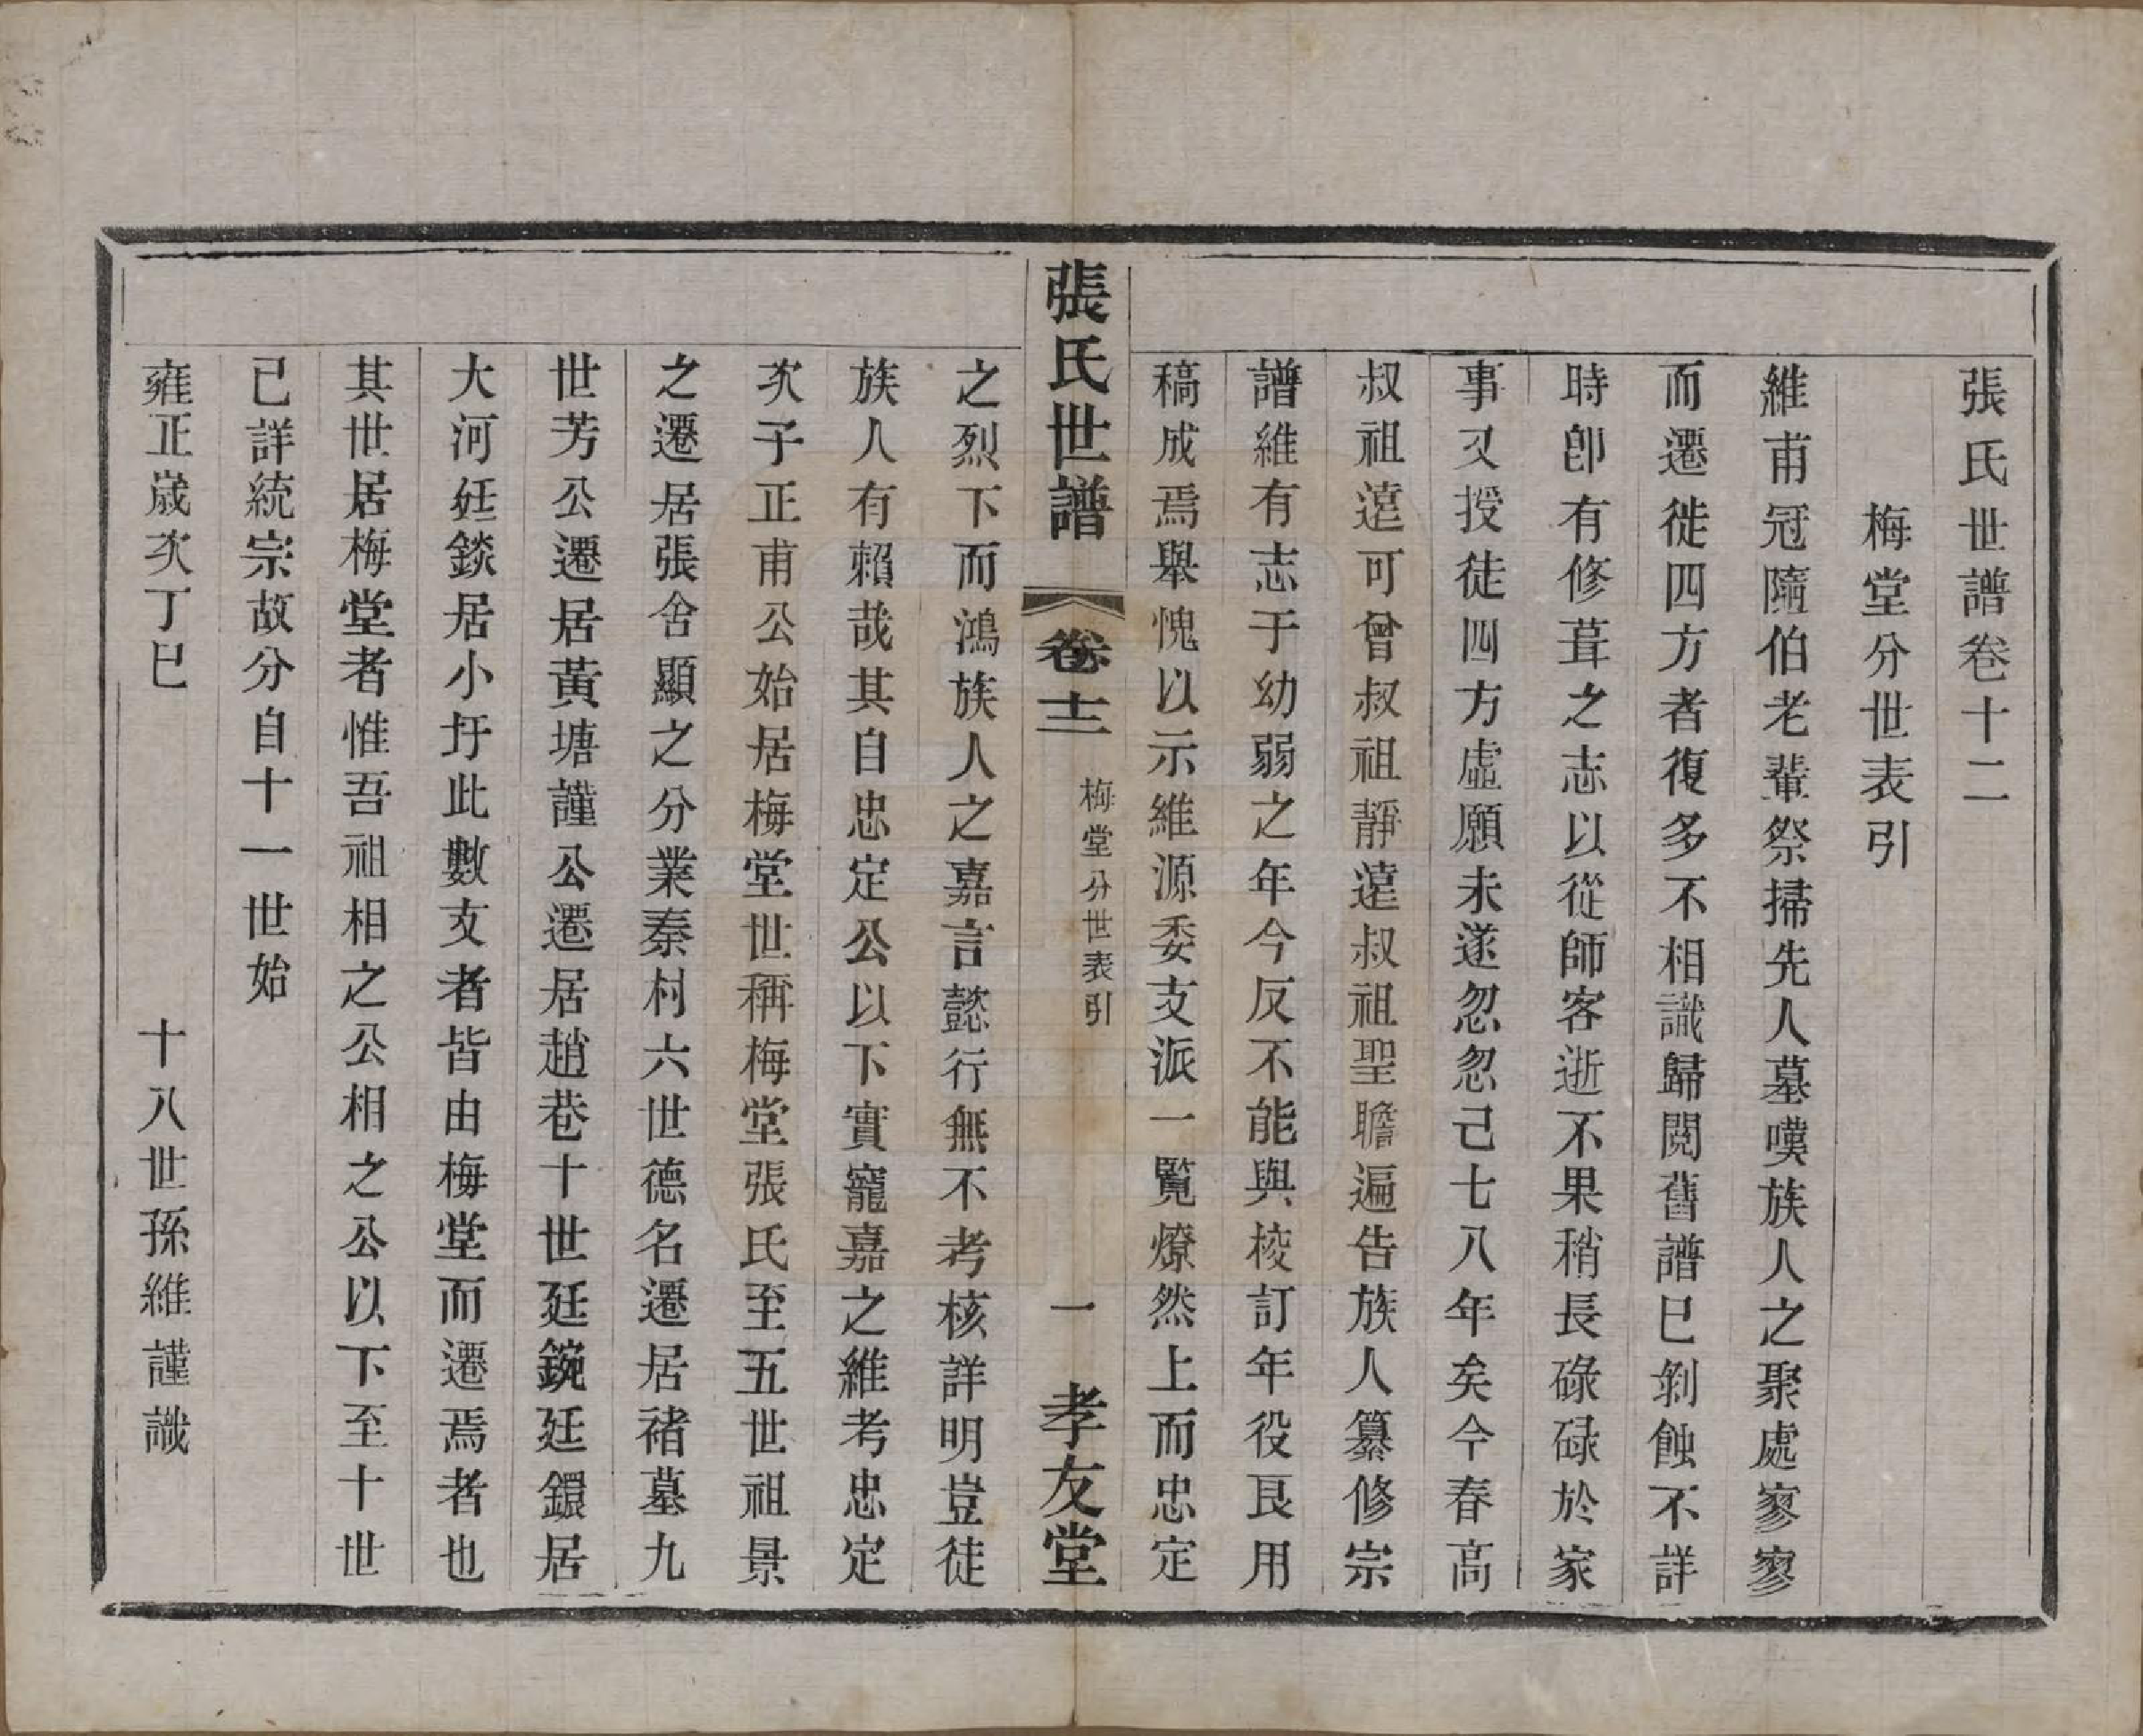 張氏世譜卷十二
梅堂分世表引
維甫冠隨伯老輩祭掃先人墓嘆族人之聚處寥寥
而遷徙四方者復多不相識歸閱舊譜已剝蝕不詳
時卽有修葺之志以從師客逝不果稍長碌碌於家
事又授徒四方虛願未遂忽忽已七八年矣今春高
叔祖遠可曾叔祖靜遠叔祖聖瞻遍告族人纂修宗
譜維有志于幼弱之年今反不能與校訂年役艮用
稿成焉舉愧以示維源委支派一覧燎然上而忠定
張氏世譜
卷十二
梅堂分世表引
一
孝友堂
之烈下而鴻族人之嘉言懿行無不考核詳明豈徒
族人有賴哉其自忠定公以下實寵嘉之維考忠定
次子正甫公始居梅堂世稱梅堂張氏至五世祖景
之遷居張舍顯之分業秦村六世德名遷居褚墓九
世芳公遷居黃塘謹公遷居趙巷十世廷鋺廷鐶居
大河廷錟居小圩此數支者皆由梅堂而遷焉者也
其世居梅堂者惟吾祖相之公相之公以下至十世
已詳統宗故分自十一世始
雍正歲次丁巳
十八世孫維謹識